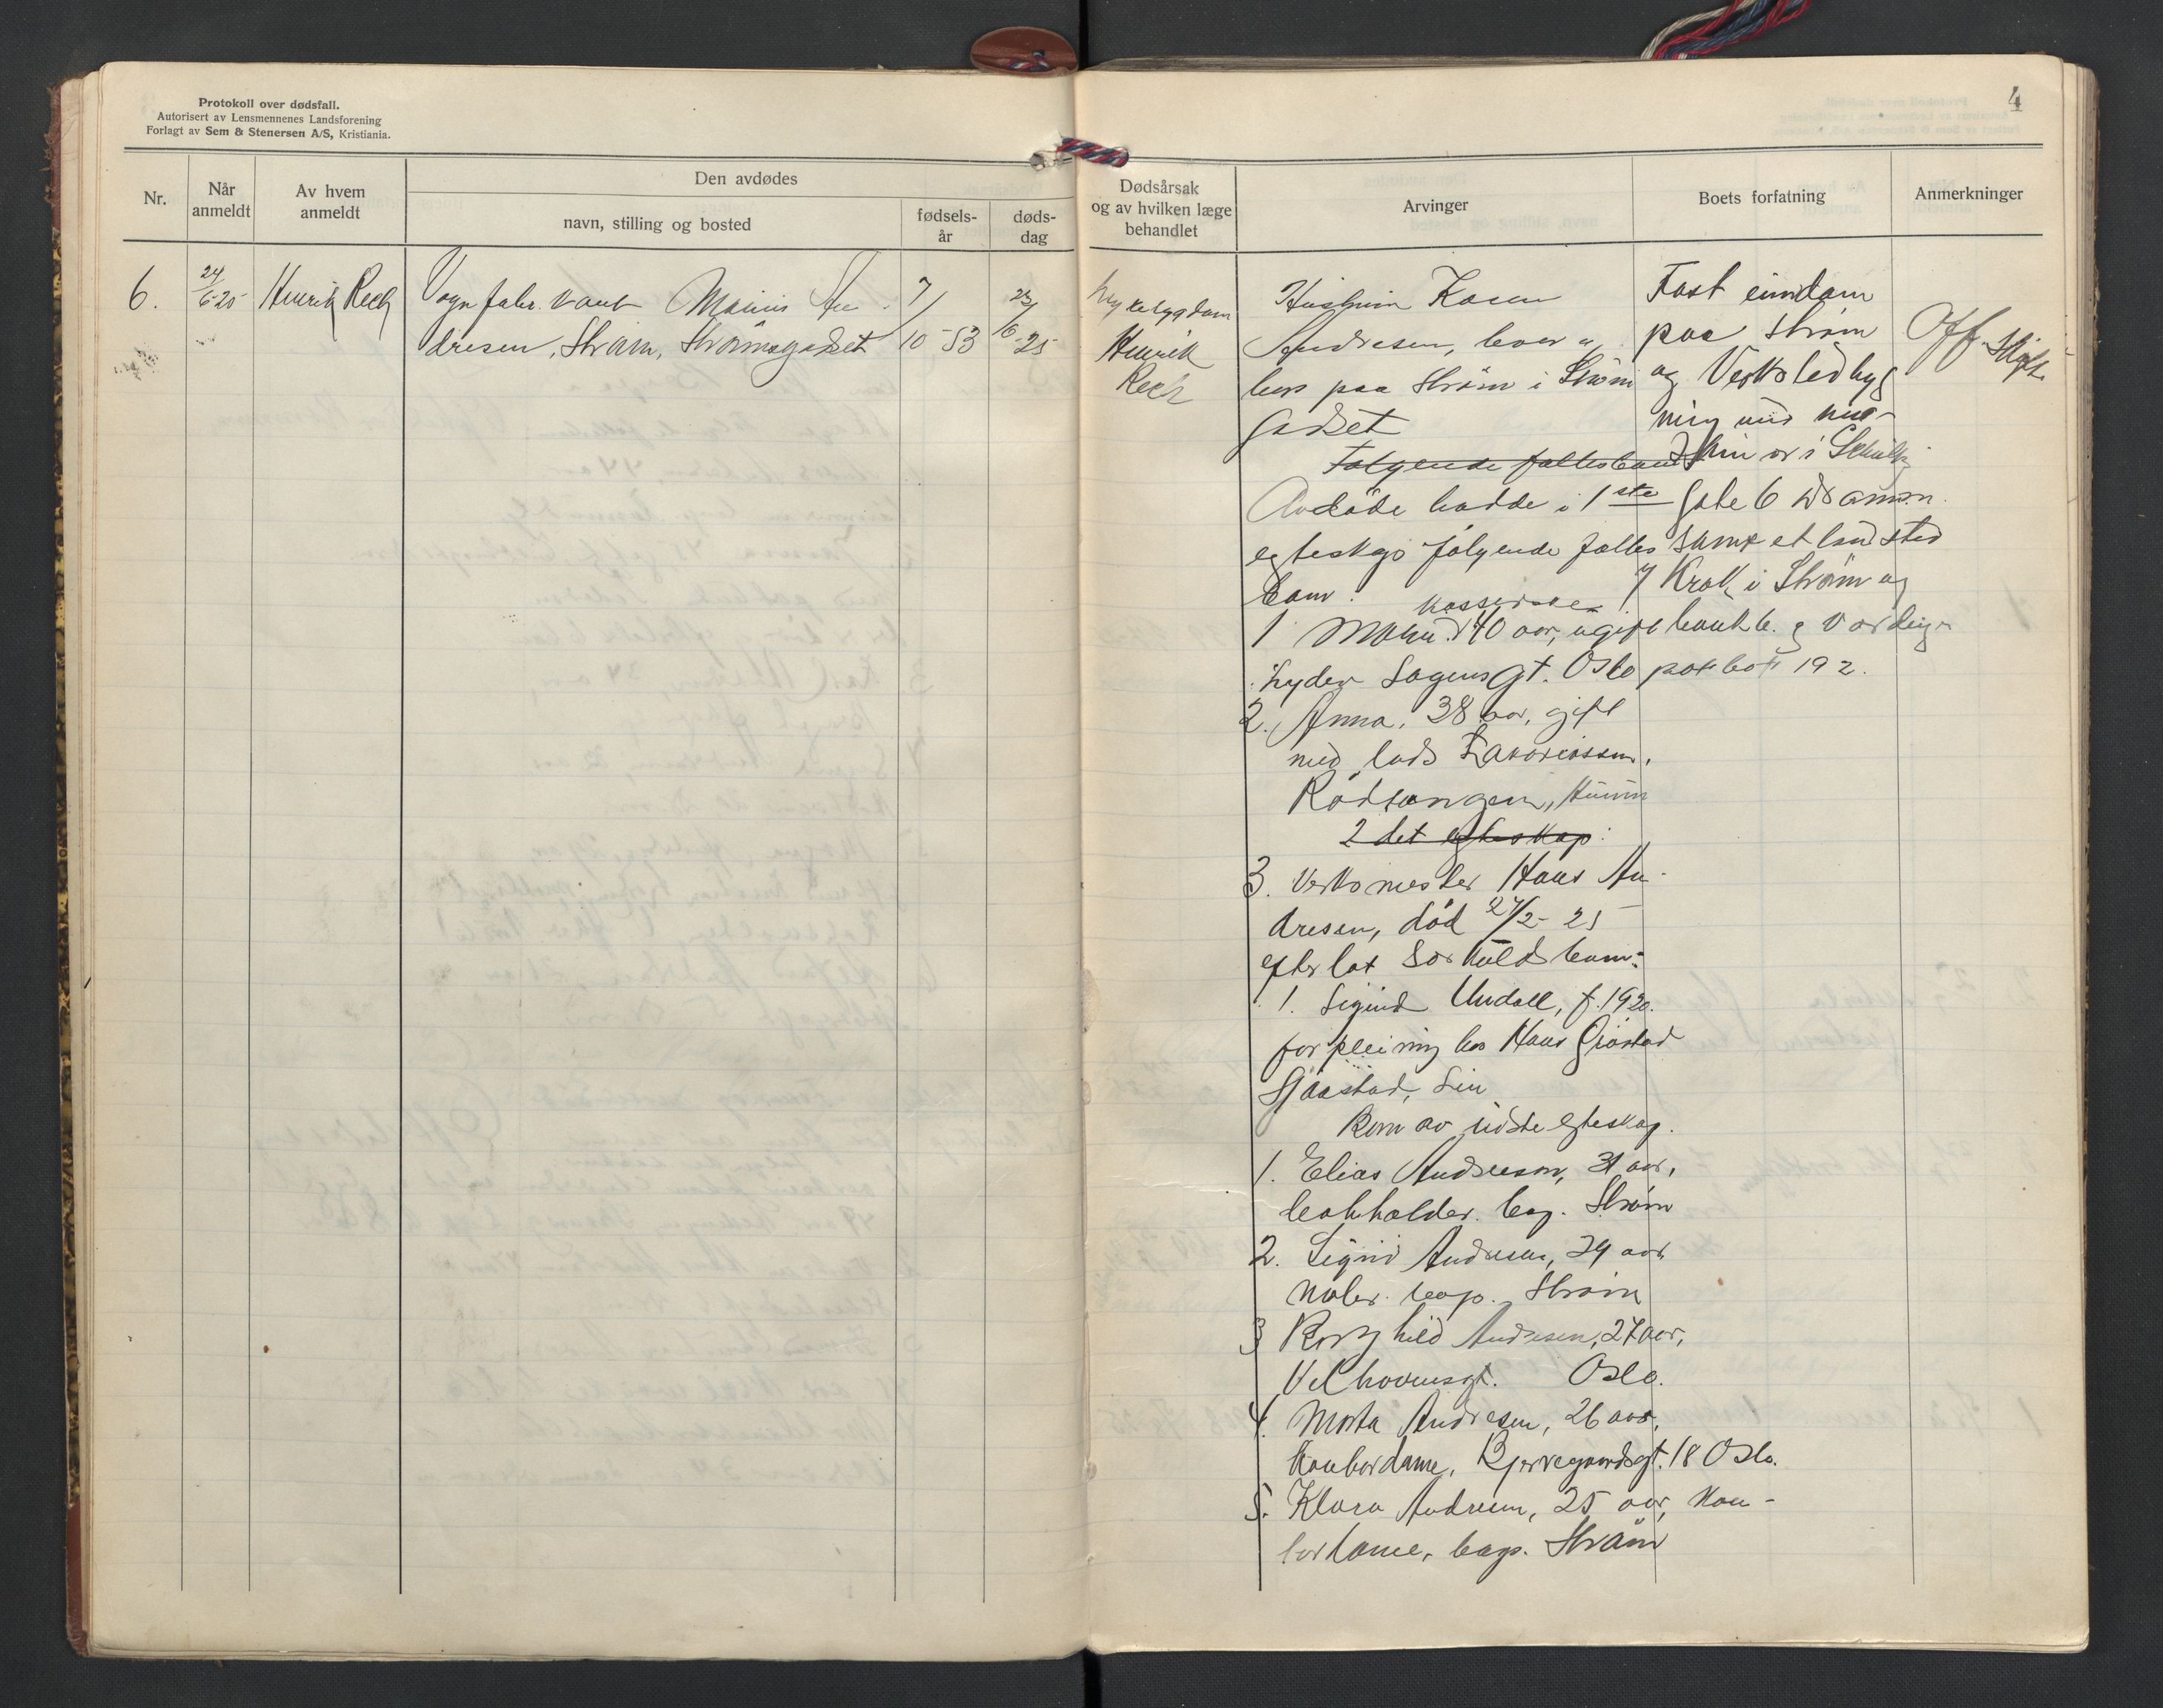 4
Protokoll over dødsfall.
Autorisert av Lensmennenes Landsforening
Forlagt av Sem & Stenersen A/S, Kristiania.
Nr.
Når
anmeldt
Av hvem
anmeldt
Den avdødes
navn, stilling og bosted
fødsels-
år
døds-
dag
Dødsårsak
og av hvilken læge
behandlet
Arvinger
Boets forfatning
Anmerkninger
6.
24/6-25
Henrik Rech
Vognfabr. Marius An-
dresen, Strøm, Strømsgodset
7/
10-53
23/
6-25
Henrik
Rech
Hustruen
Andresen, bor
hus paa Strøm i Strøm
godset
Følgende fællesbarn
Avdøde hadde i 1ste
egteskap følgende fælles
barn:
kasserske
1 40 aar, ugift
Lyder Sagensgt. Oslo postbox 192.
2. Anna, 38 aar, gift
med lods
Rødtangen, Hurum
2 det egteskap:
3. Verksmester Hans An-
dresen, død 27/2-25
efterlot Særkuldsbarn:
1. Sigurd Undall, f. 1920.
forpleining hos Hans Gjøstad
Sjaastad, Lier
Barn av sidste egteskap.
1. Elias Andresen, 31 aar,
bokholder. bop. Strøm
2. Andresen, 29 aar
maler. bop. Strøm
3 Borghild Andresen, 27 aar,
Velhavensgt. Oslo.
4. Marta Andresen, 26 aar,
Kontordame, Bjerregaardsgt. 18 Oslo.
5. Klara Andresen, 25 aar, Kon-
tordame, bop. Strøm
Fast eiendom
paa Strøm
og Verkstedbyg
ning med
gate 6 Drammen
samt et landsted
i Krok i Strøm og
Off. Skifte